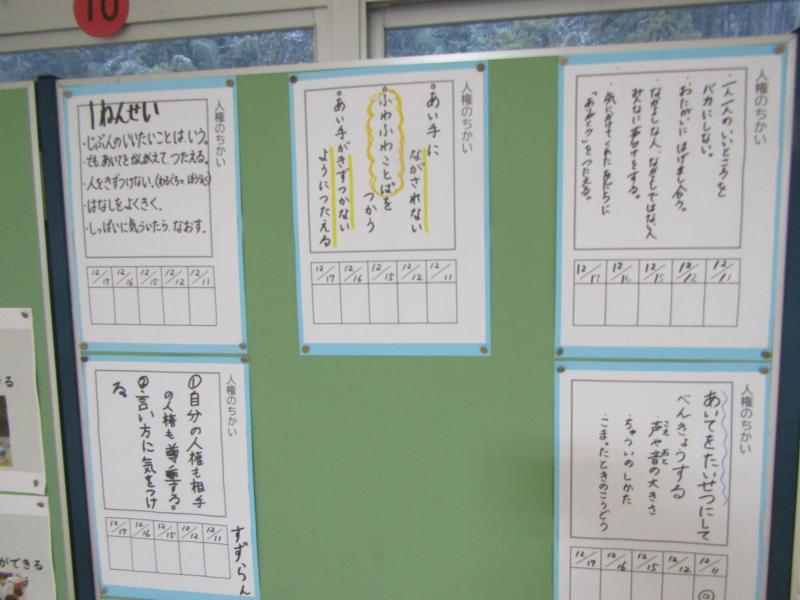 10
人権のちかい
1ねんせい
・じぶんのいいたいことは、いう。
・でも、あいてをかんがえて、つたえる。
・人をきずつけない。
・はなしをよくきく。
・しっぱいに気づいたら、なおす。
12/11
12/12
12/15
12/16
12/17
人権のちかい
。あい手に
ながされない
。ふわふわことばを
つかう
。あい手がきずつかない
ようにつたえる
12/11
12/12
12/15
12/16
12/17
人権のちかい
・一人一人のいいところを
バカにしない。
・おたがいにはげまし合う。
・なかよしな人、なかよしではない人
みんなに声かけをする。
・気にかけてくれた友だちに
「ありがとう」をつたえる。
12/11
12/12
12/15
12/16
12/17
人権のちかい
①自分の人権も相手
の人権も尊重する。
②言い方に気をつけ
る
12/11
12/12
12/15
12/16
12/17
すずらん
人権のちかい
あいてをたいせつにして
べんきょうする
・声や音の大きさ
こえ おと
・ちゅういのしかた
・こまったときのこうどう
12/11
12/12
12/15
12/16
12/17
◎
る
ができる